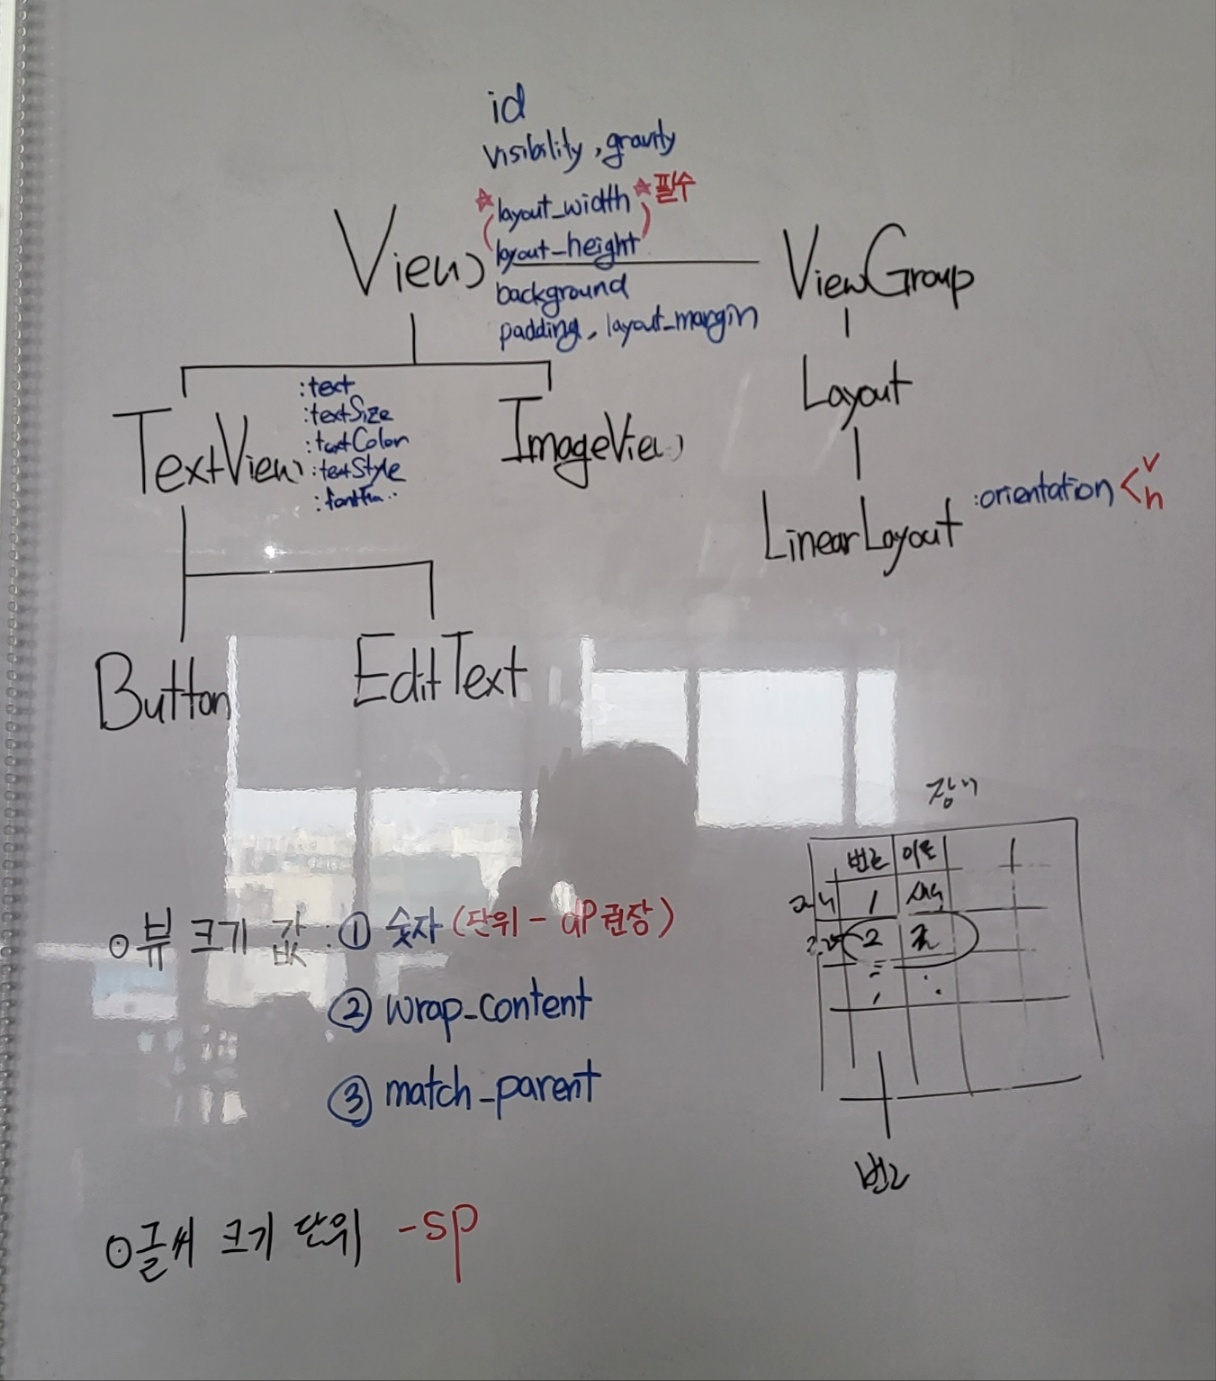 id
visibility, gravity
☆layout_width ☆필수
layout_height
View
background
padding, layout_margin
ViewGroup
Layout
LinearLayout :orientation < v
h
TextView
:text
:textSize
:textColor
:textStyle
ImageView
Button
EditText
번호
1
2
⊙뷰 크기 값 : ① 숫자 (단위 - dP 권장)
② wrap_content
③ match_parent
⊙글씨 크기 단위 -sp